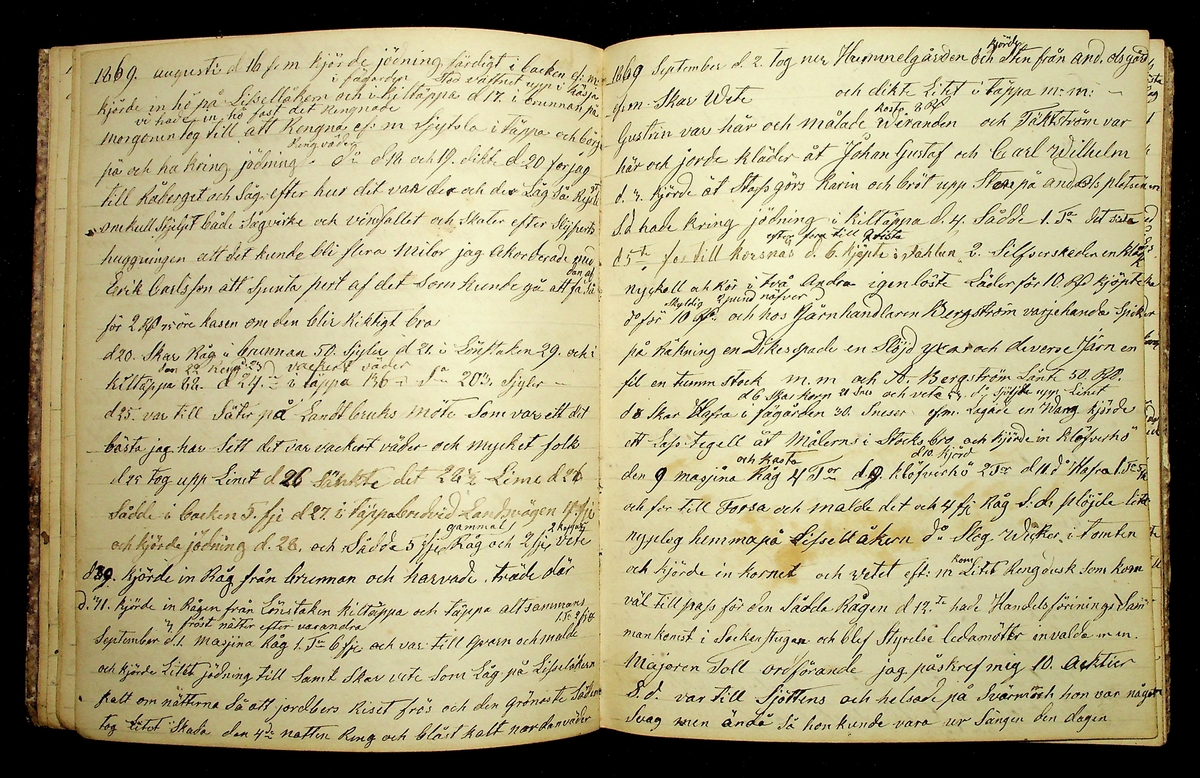 1869. augusti d 16 fm kjörde jödning färdigt i backen ef: m
i fägården Tod vattnet upp i håsn
kjörde in hö på Lisseltäken och i kiltäppa d. 17. i brunnan på
vi hade in hö fast det Rengnade
morgonen tog till att Rengna ef: m Sjytsla i täppa och börja
Rengväder
på och ha kring jödning do d. 18 och 19. dikte d. 20 for jag
till Råberget och Såg efter hur det var der och der Låg så
omkull Stjelpt både Sågvirke och vindfallit och Skaler efter
huggningen att det kunde bli flera Milor jag akorderade med
Erik Carlsson att Sjunta pert af det Som kunde gå att få Så
för 2 öre kasen om den blir Riktigt bra
d 20. Skar Råg i brunnan 50. Sjyler d. 21. i Lönstaken 29. och i
vackert väder
kiltäppa 62. d 24. i täppa 136 Sa 203. Sjyler —
d 25. var till Säter på Landtbruks möte Som var ett det
bästa jag har Sett det var vackert väder och mycket folk
d 25 tog upp Linet d 26 det Lime d 26
Sådde i backen 5. fji d 27. i täppa bredvid Landsvägen 4. fji
gammal
och kjörde jödning d. 28. och Sådde 5 fji Råg och 2 fji vete
d 30. kjörde in Råg från brunnan och harvade träde där
d. 31. kjörde in Rågen från Lönstaken kiltäppa och täppa altsammans
frost nätter efter varandra
September d. 1. masjina Råg 1. Ta 6 fji och var till Qvarn och malde
och kjörde Litet jödning till Samt Skar vete Som Låg på Lisselåkern
kalt om nätterna Så att jordbers Riset frös och den grönaste Säden
tog litet Skada den 4de natten Reng och blåst kalt nordanväder
kjörde
1869 September d. 2. tog ner Hummelgården och Sten från and. ols gård
efm. Skar Vete och dikte Litet i täppa m: m: —
kosta
Gustrin var här och målade Veranden och Täktström var
här och jorde kläder åt Johan Gustaf och Carl Wilhelm
d. 3. kjörde åt Stafs görs karin och bröt upp Sten på and ols platsen
Så hade kring jödning i kiltäppa d. 4. Sådde 1. Ta det sista
d 5te for till korsnäs d. 6. kjöpte i Fahlun 2. Silfverskeden en klåck
nyckell och kör i två Andra igen löste Läder för 10. kjöpte
Skyldig 2 pund näfver
do för 10 och hos Järnhandlaren Bergström varjehanda Spiker
på Räkning en Dikesspade en Slöjd yxa och diverse Järn en
fil en tumm stock m. m och A. Bergström Länte 50.
d 6 Skar korn 21 Sneser och vete Sjöjtte upp Linet
d 8 Skar Hafra i fägården 30. Sneser efm: Lagare en Wäng kjörde
ett Lass tegell åt Målern i Stocksbro och kjörde in klöfverhö
och kasta d 10. kjörd
den 9 masjina Råg 4 Tor d. 9. klöfverhö d 11 do Hafra
och for till Forsa och malde det och 4 fji Råg S: d: plöjde Litet
nyplog hemma på Lisselåkern do Slog Wicker i tomten
och kjörde in kornet och vetet eft: m kom Litet Rengdusk Som kom
väl till pass för den Sådde Rågen d 12.te hade Handelsföriningen Sam-
mankomst i Sockenstugan och blef Styrelse ledamötter invalda m. m.
Majoren Toll ordförande jag påskref mig 10. Acktier
S. d. var till Sjöttens och helsade på Svärmor hon var något
Svag men ändå Så hon kunde vara ur Sängen den dagen